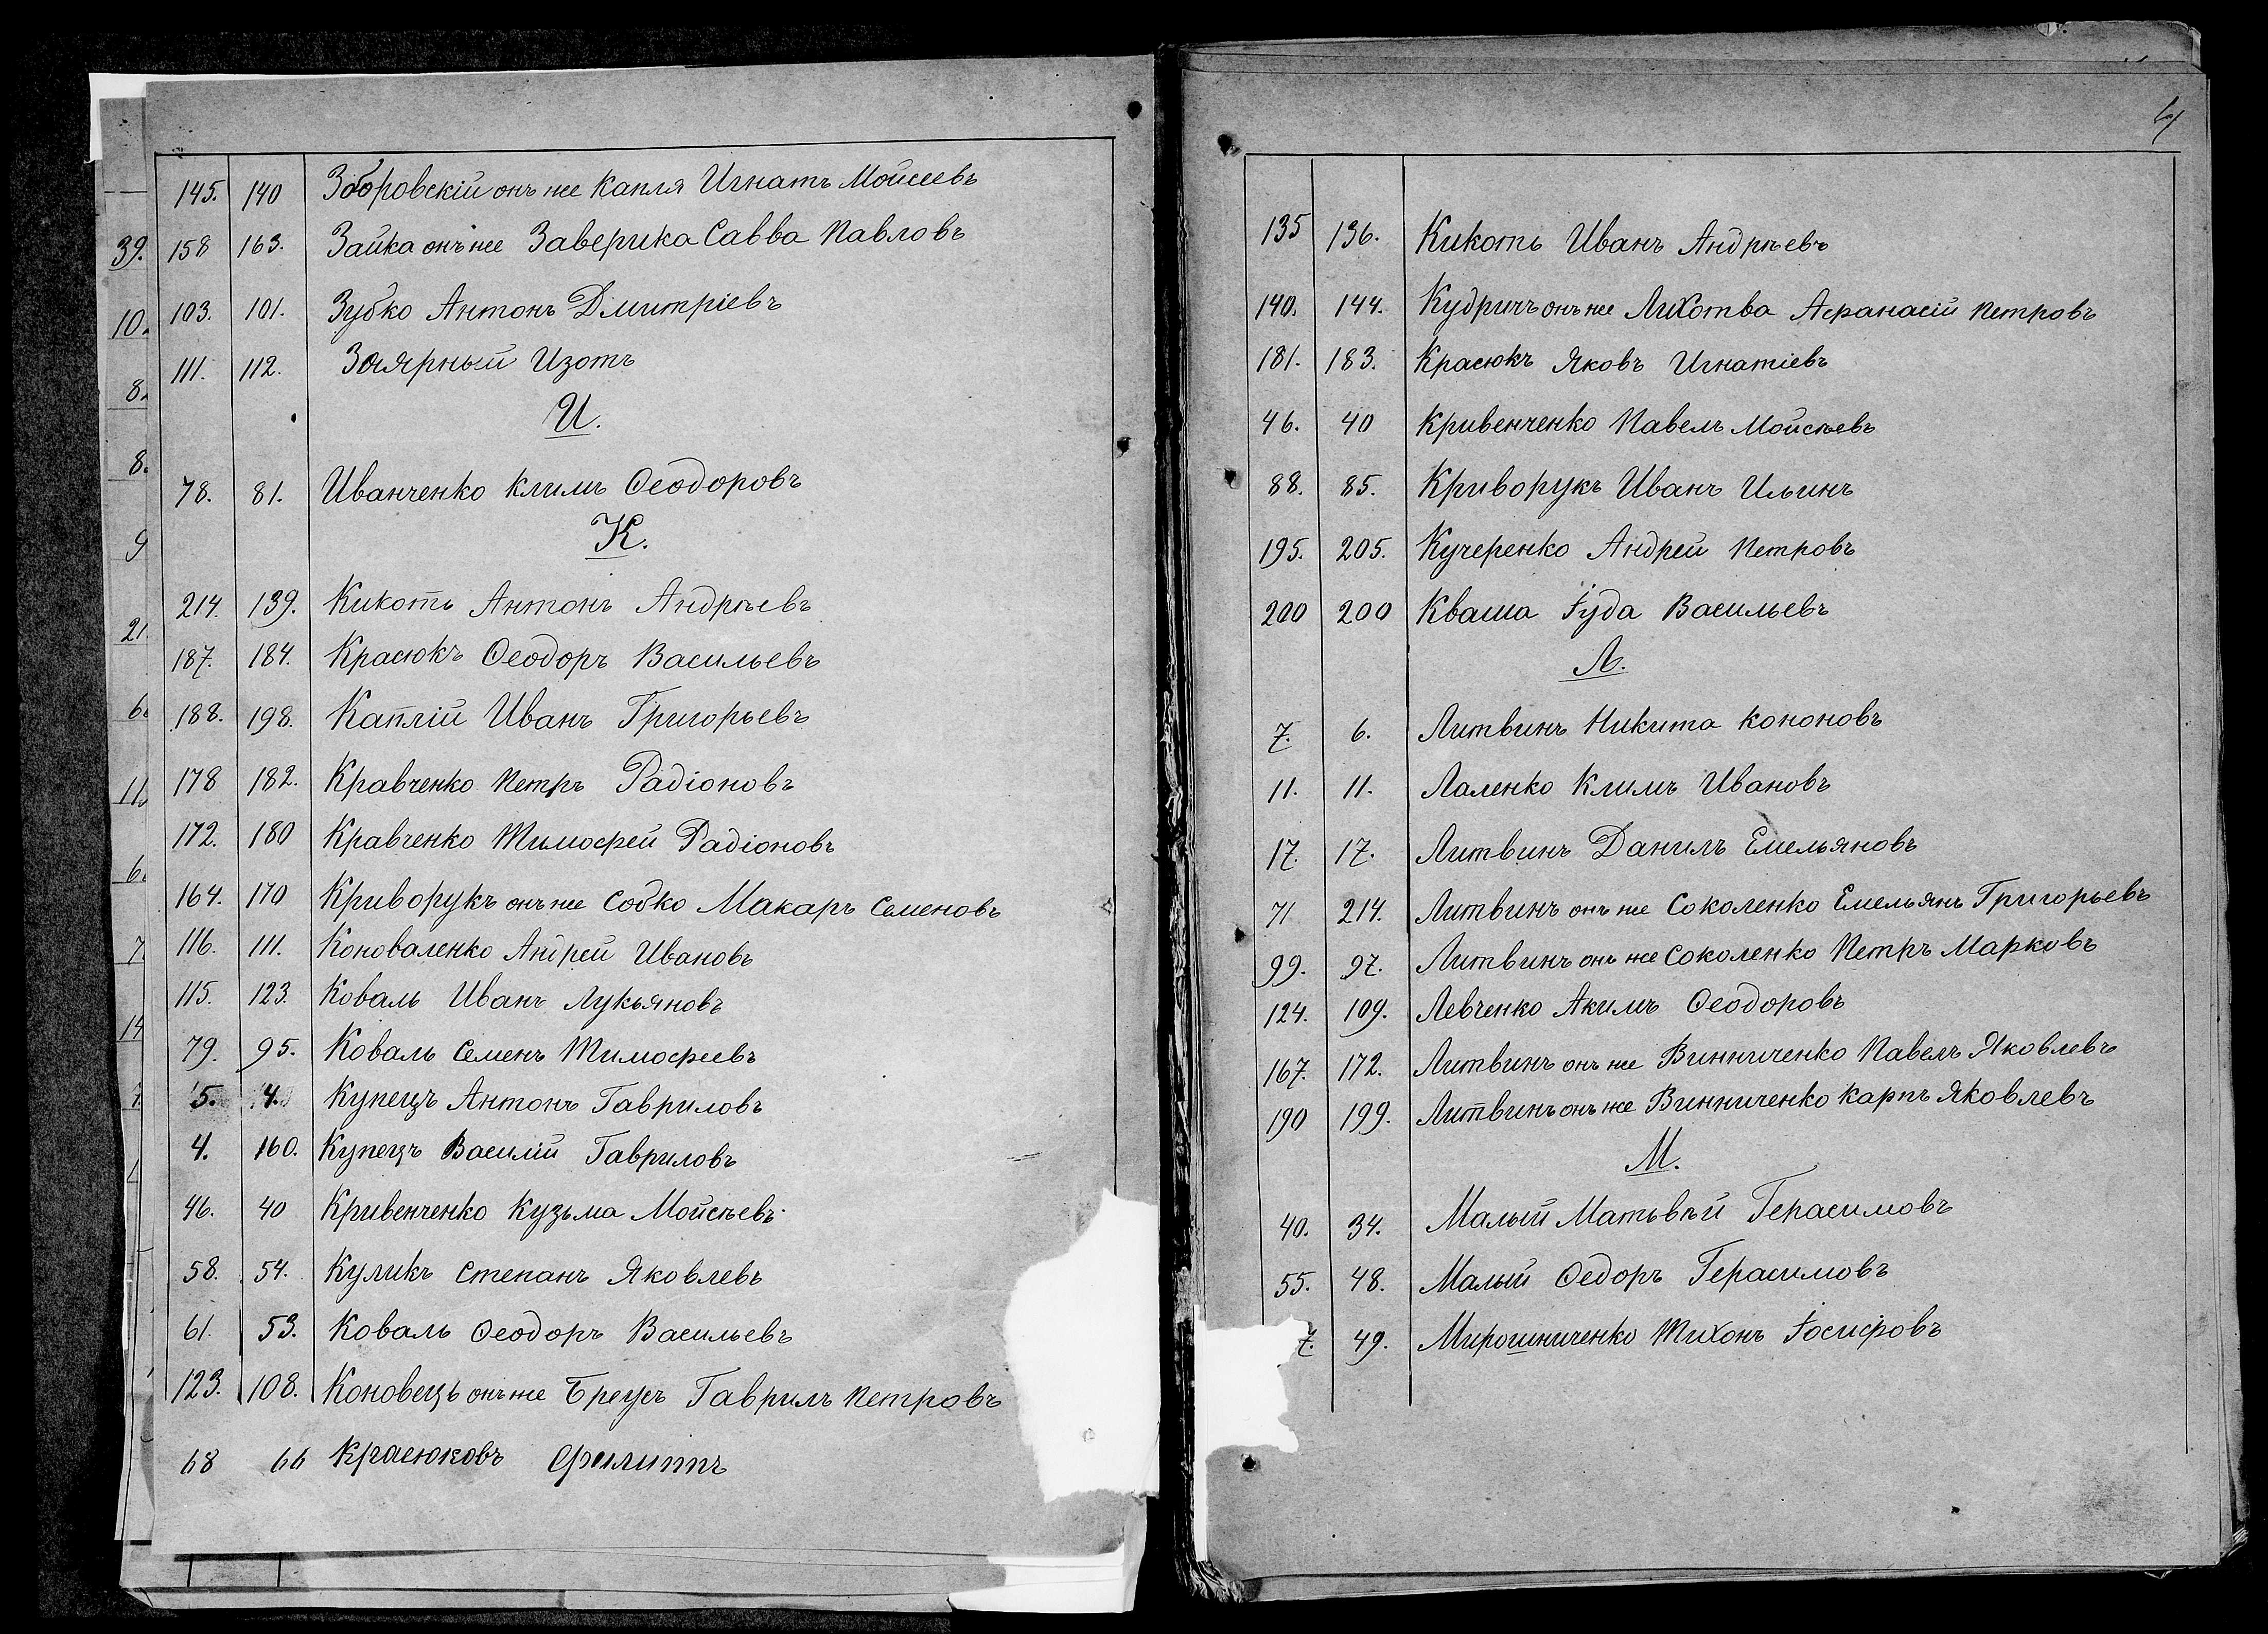 145. 140 Зборовскій онъ же Капля Игнатъ Мойсеевъ
158 163. Зайка онъ же Заверика Савва Павловъ
103. 101. Зубко Антонъ Дмитріевъ
111. 112. Заярный Изотъ
И.
78. 81. Иванченко Климъ Ѳеодоровъ
К.
214. 139. Кикоть Антонъ Андрѣевъ
187. 184. Красюкъ Ѳеодоръ Васильевъ
188. 198. Каплій Иванъ Григорьевъ
178 182. Кравченко Петръ Радіоновъ
172. 180 Кравченко Тимофей Радіоновъ
164. 170 Криворукъ онъ же Собко Макаръ Семеновъ
116. 111. Коноваленко Андрей Ивановъ
115. 123. Коваль Иванъ Лукьяновъ
79. 95. Коваль Семенъ Тимофеевъ
5. 4. Купецъ Антонъ Гавриловъ
4. 160. Купецъ Василій Гавриловъ
46. 40 Кривенченко Кузьма Мойсѣевъ
58. 54. Куликъ Степанъ Яковлевъ
61. 53. Коваль Ѳеодоръ Васильевъ
123. 108. Коновецъ онъ же Брецъ Гаврилъ Петровъ
68 66 Красюковъ Филиппъ
39.
10.
8.
8.
9
21.
11.
7
14
4
135 136. Кикоть Иванъ Андрѣевъ
140. 144. Кудричъ онъ же Лихотва Афанасій Петровъ
181. 183. Красюкъ Яковъ Игнатіевъ
46. 40 Кривенченко Павелъ Мойсѣевъ
88. 85. Криворукъ Иванъ Ильинъ
195. 205. Кучеренко Андрей Петровъ
200 200 Кваша Іуда Васильевъ
Л.
7. 6. Литвинъ Никита Кононовъ
11. 11. Лаленко Климъ Ивановъ
17. 17. Литвинъ Данилъ Емельяновъ
71 214. Литвинъ онъ же Соколенко Емельянъ Григорьевъ
99. 97. Литвинъ онъ же Соколенко Петръ Марковъ
124. 109. Левченко Акимъ Ѳеодоровъ
167. 172. Литвинъ онъ же Винниченко Павелъ Яковлевъ
190 199. Литвинъ онъ же Винниченко Карпъ Яковлевъ
М.
40. 34. Малый Матьвѣй Герасимовъ
55. 48. Малый Ѳедоръ Герасимовъ
7. 49. Мирошниченко Тихонъ Іосифовъ